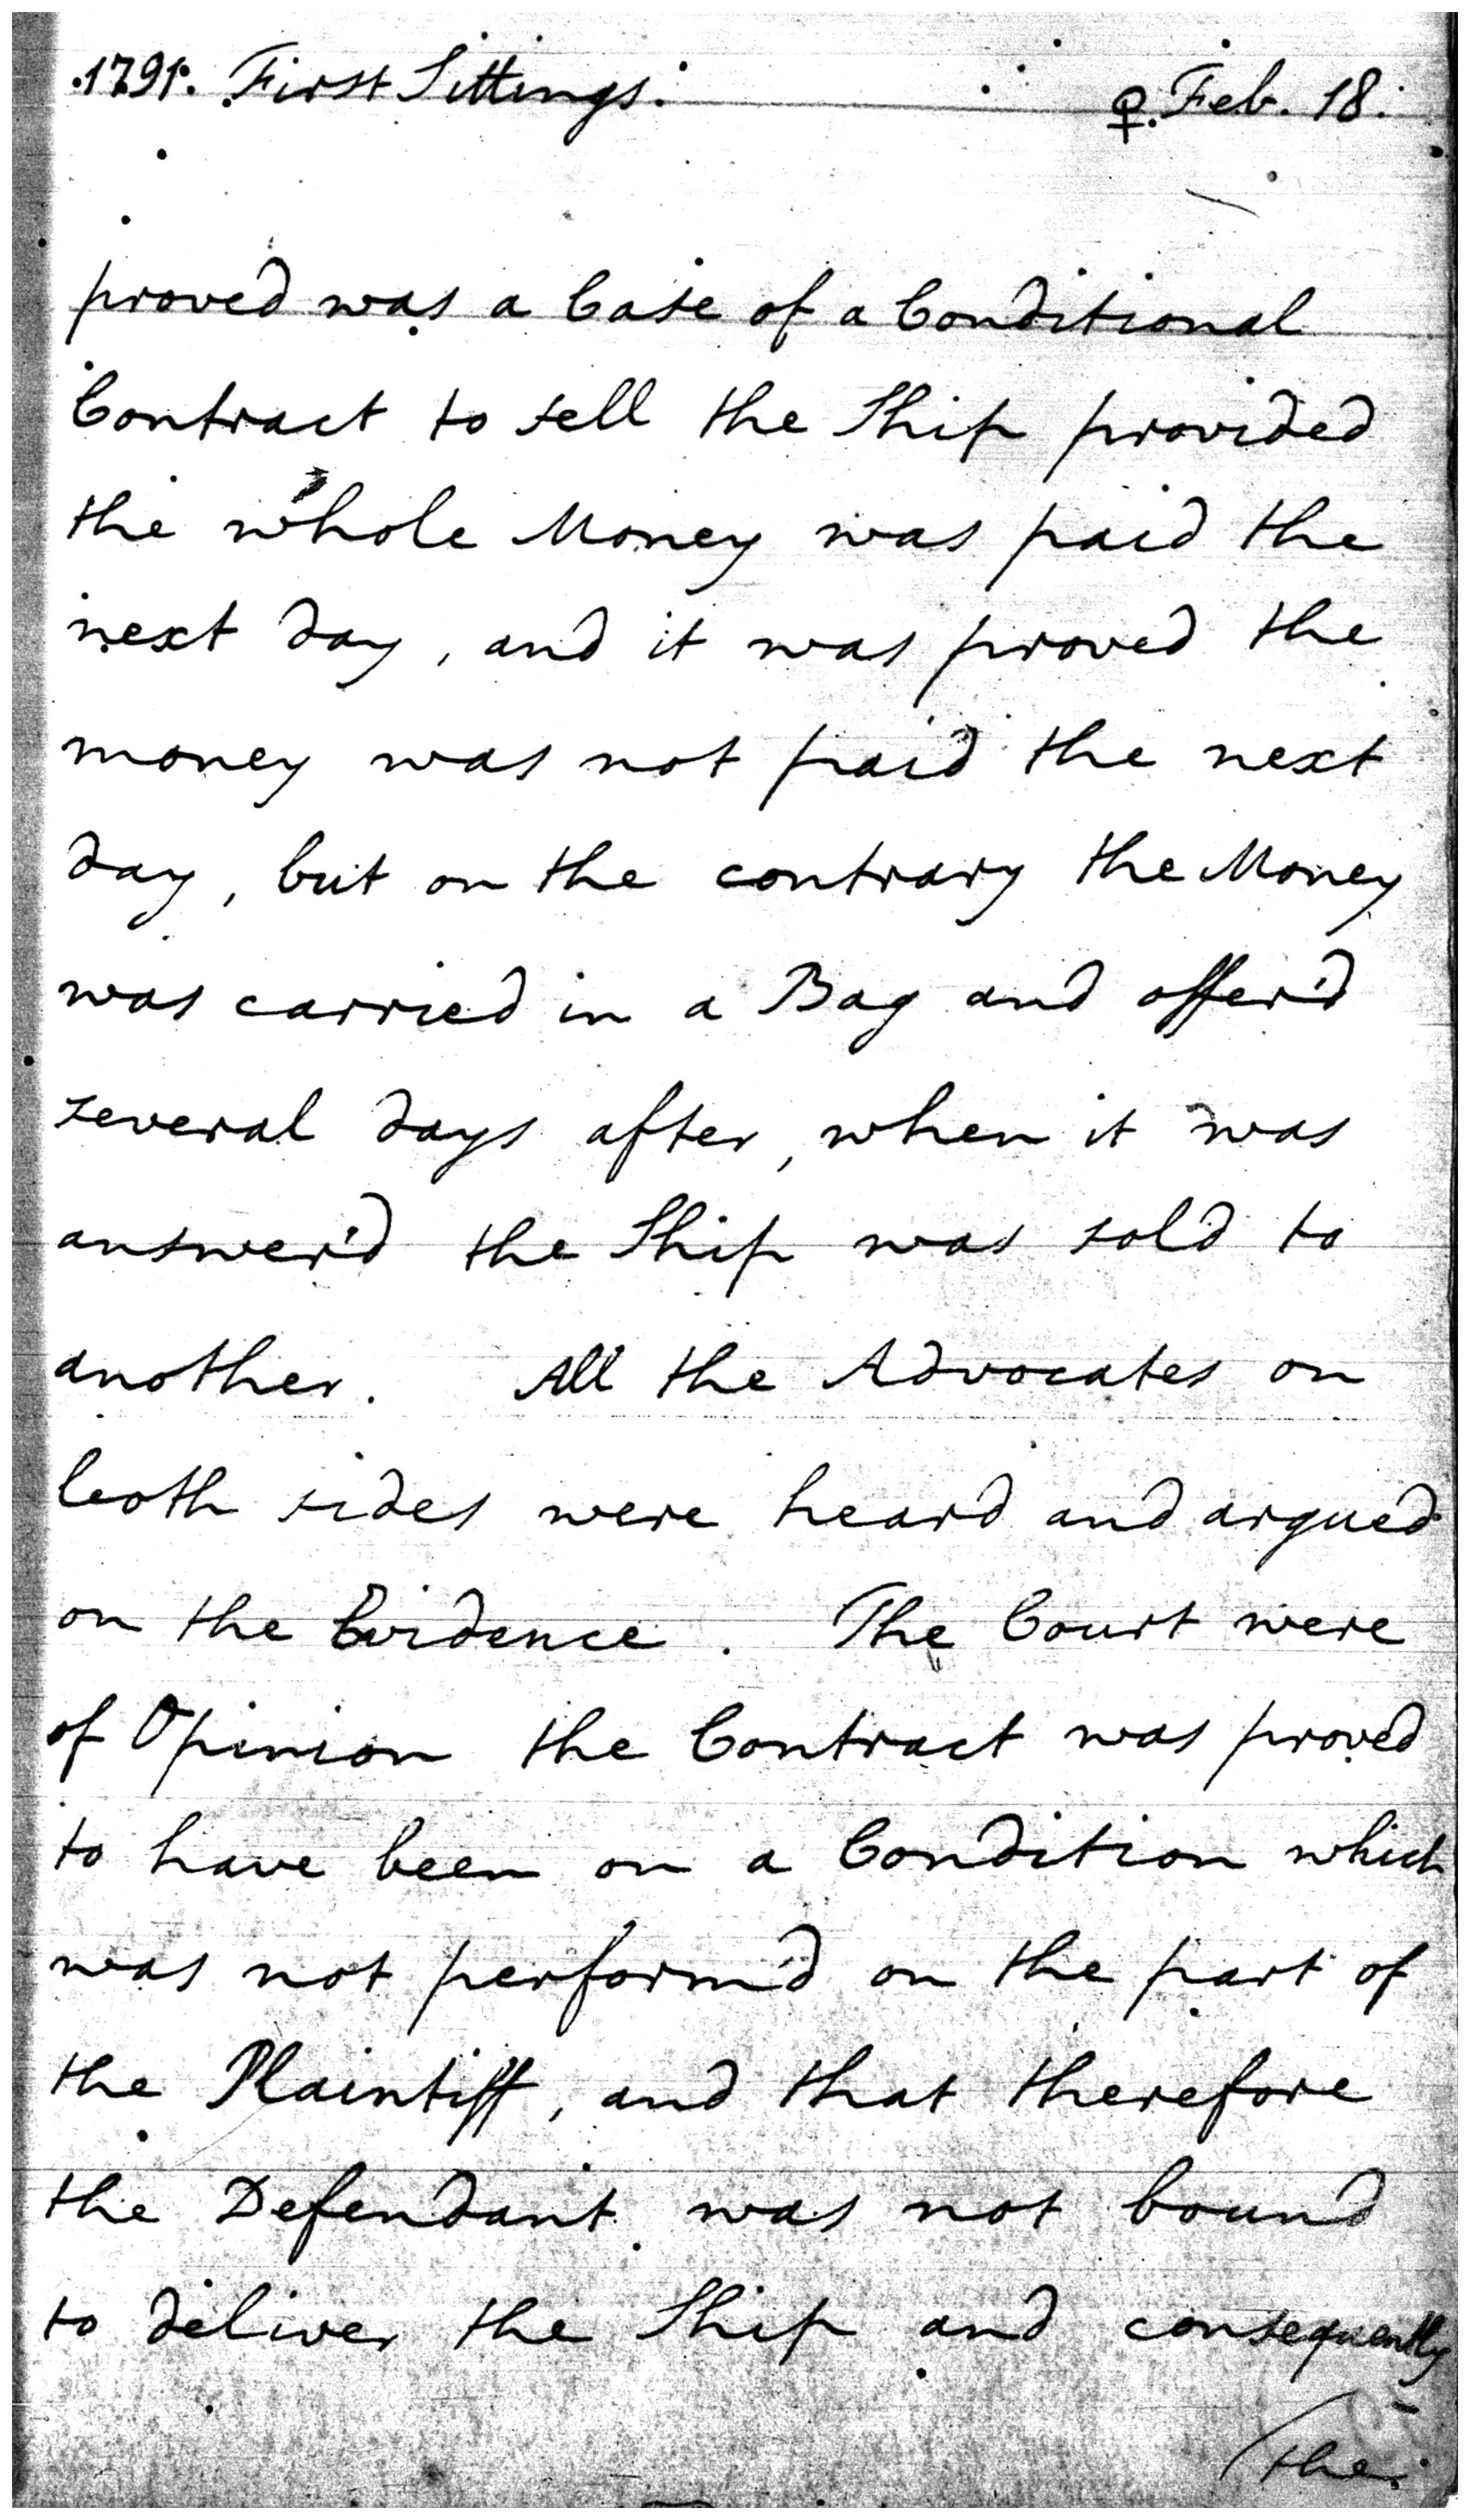 1791. First Sittings. ♀. Feb. 18.
proved was a Case of a Conditional
Contract to sell the Ship provided
the whole Money was paid the
next day, and it was proved the
money was not paid the next
day, but on the contrary the Money
was carried in a Bag and offer'd
several days after, when it was
answer'd the Ship was sold to
another. All the Advocates on
both sides were heard and argued
on the Evidence. The Court were
of Opinion the Contract was proved
to have been on a Condition which
was not perform'd on the part of
the Plaintiff, and that therefore
the Defendant was not bound
to deliver the Ship and consequently
the